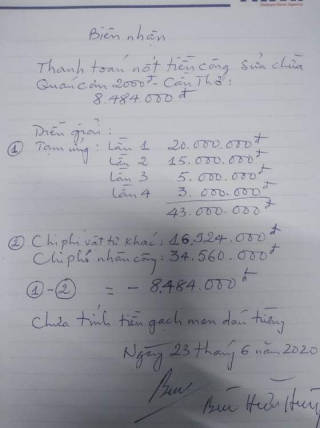 Biên nhận
Thanh toán nốt tiền công sửa chữa
Quán cơm 2000đ - Cần Thơ:
8.484.000đ
Diễn giải:
① Tạm ứng: Lần 1 20.000.000đ
Lần 2 15.000.000đ
Lần 3 5.000.000đ
Lần 4 3.000.000đ
43.000.000đ
② Chi phí vật tư khác: 16.924.000đ
Chi phí nhân công: 34.560.000đ
① - ② = - 8.484.000đ
Chưa tính tiền gạch men dán tường
Ngày 23 tháng 6 năm 2020